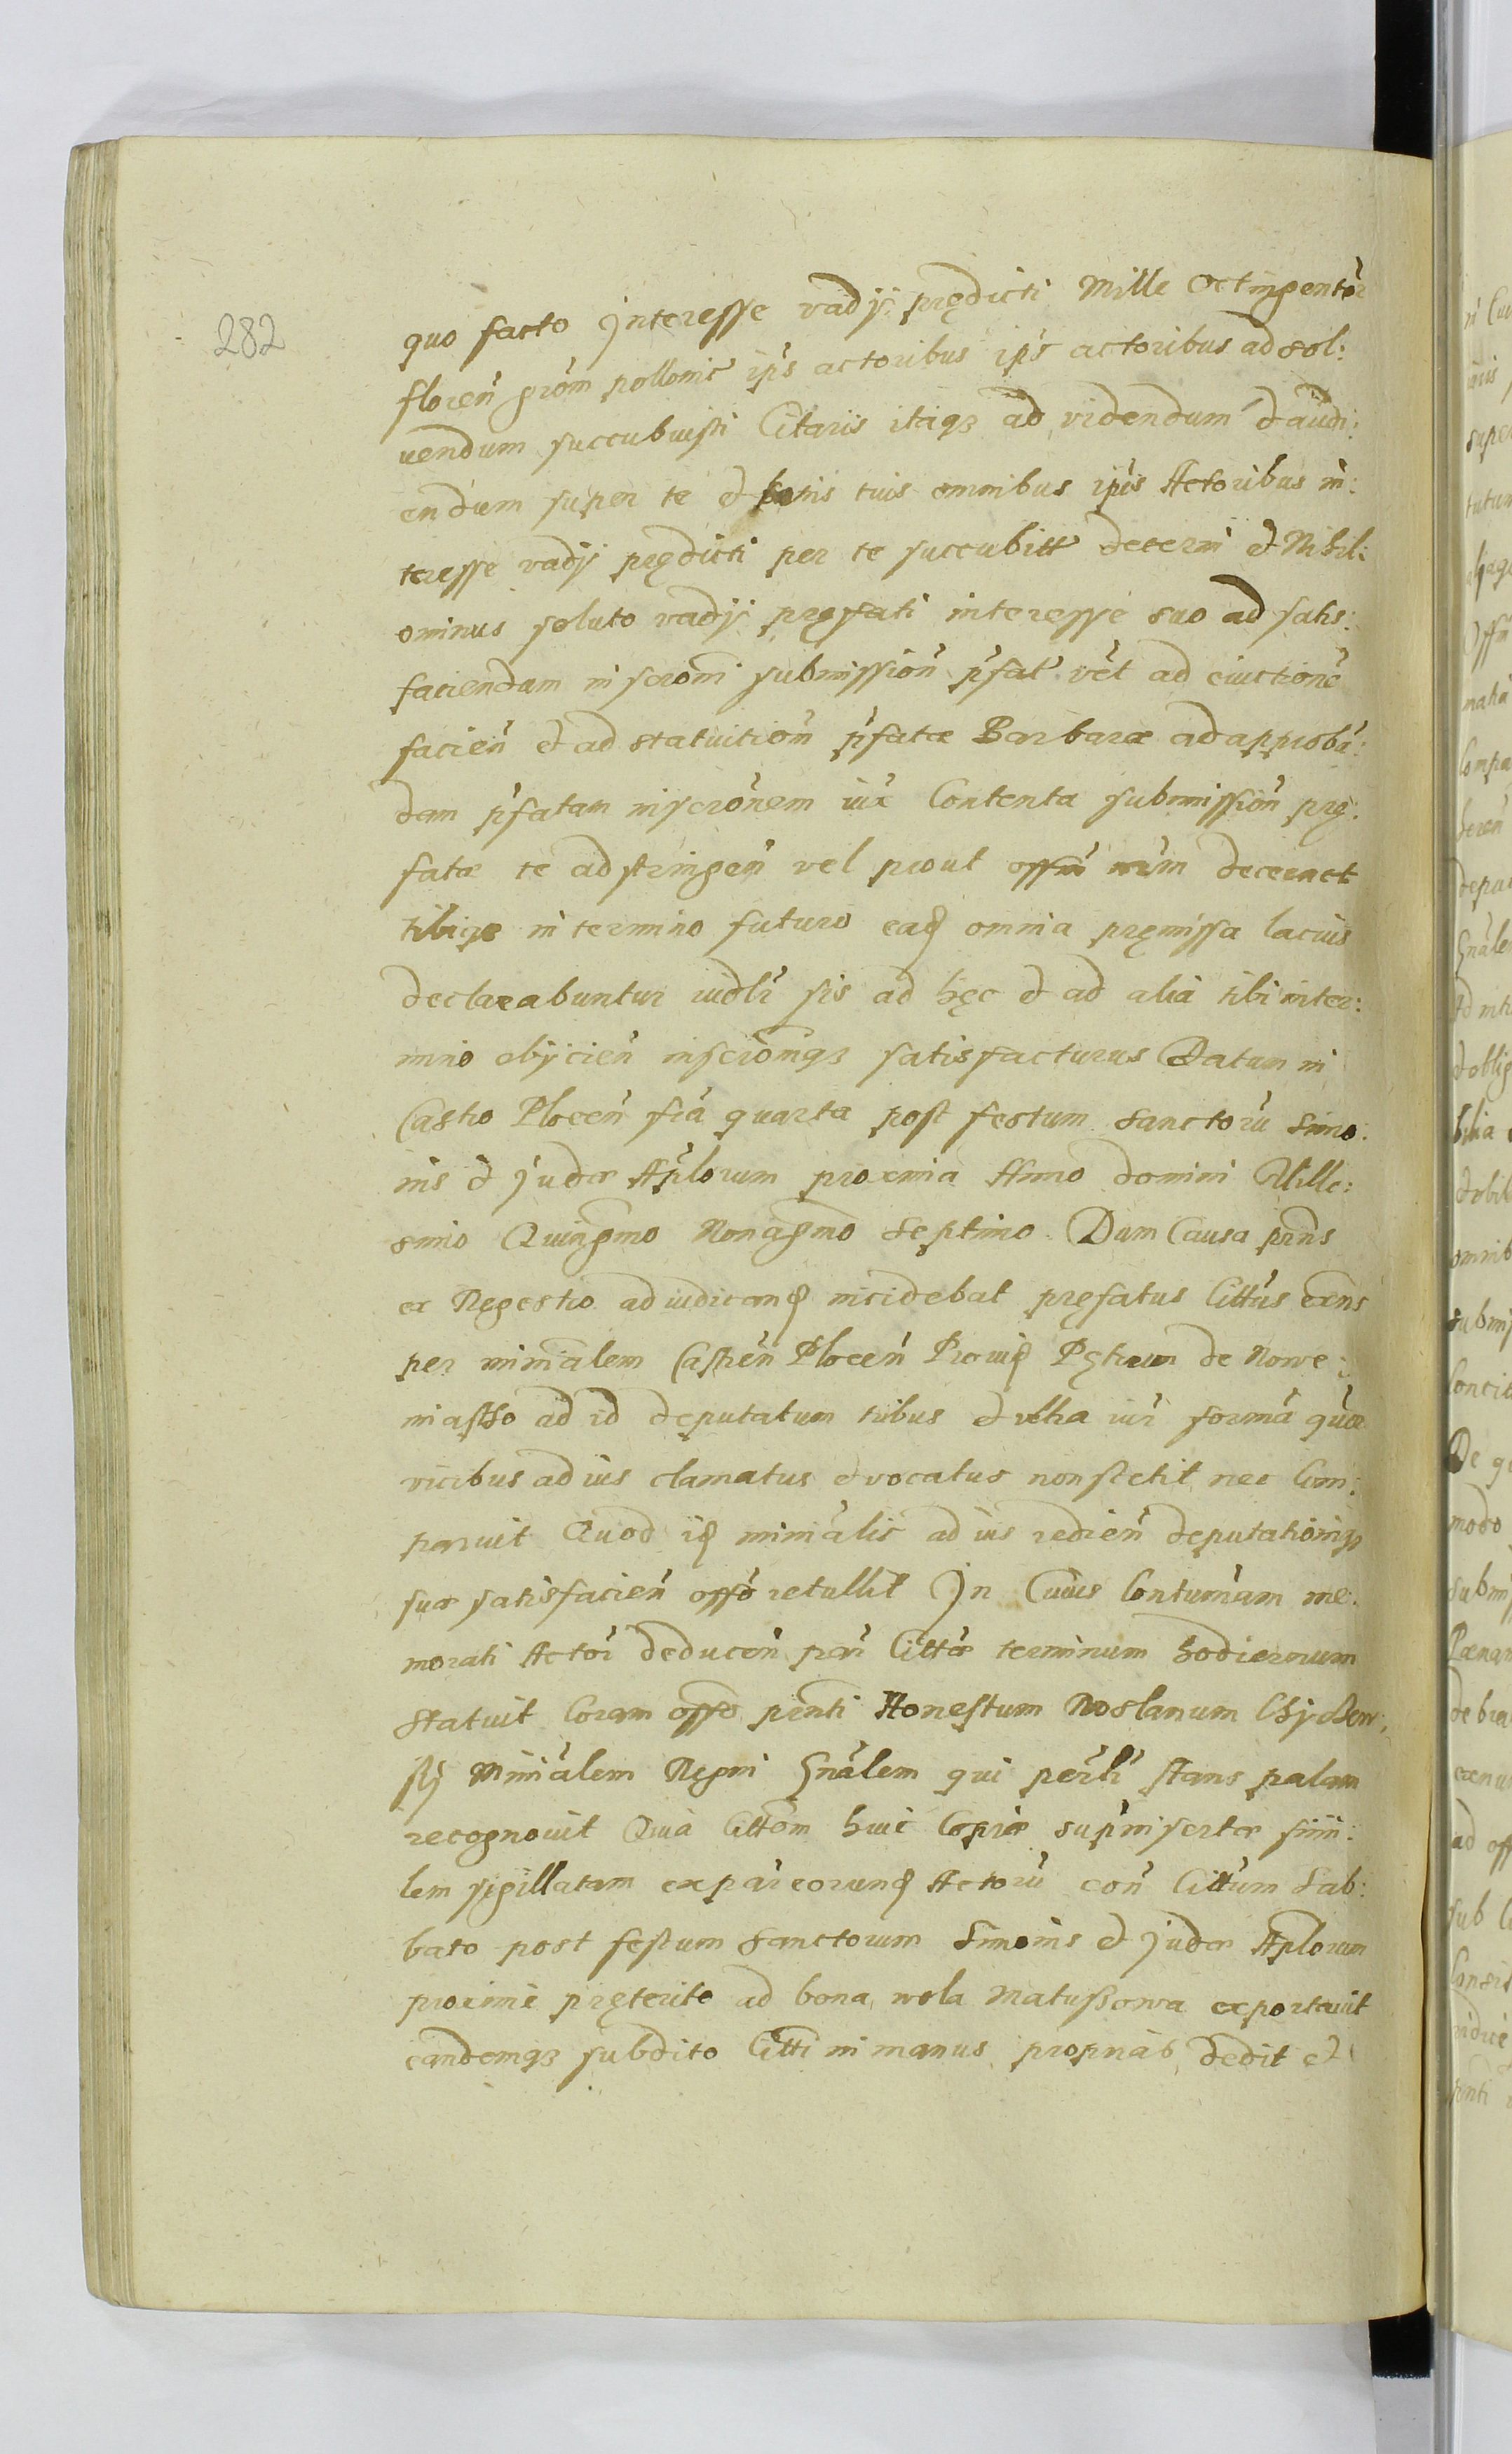 282
quo facto Interesse vadÿ prędicti Mille octingentor̃
floreñ grõm pollonic̃ ip̃s actoribus ip̃s actoribus ad sol:
uendum succubuisti Citaris itaq3 ad videndum et audi:
endum super te et bonis tuis omnibus ip̃is Actoribus in:
teresse vadÿ prędicti per te succubitt decerni et Nihil:
ominus soluto vadÿ pręfati interesse suo ad satis:
faciendam inscrõni submissioñ p̃fat̃ vel ad euictionẽ
facieñ et ad statuitioñ p̃fatæ Barbaræ ad approbã:
dam p̃fatam inscrõnem iux Contenta submissioñ prę:
fatæ te adstringeñ vel prout offiũ nr̃m decernet
tibiq3 in termino futuro eadę omnia pręmissa lacius
declarabuntur iudlr̃ sis ad hęc et ad alia tibi in ter:
mino obÿcieñ inscrõniq3 satisfacturus Datum in
Castro Ploceñ fr̃ia quarta post festum Sanctorũ Simo:
nis et Judæ Ap̃lorum proxima Anno domini Mille:
simo Quingm̃o Nonagm̃o Septimo Dum Causa pñs
ex Regestro ad iudicandę incidebat pręfatus Citt̃us exñs
per miniãlem Castreñ Ploceñ Prouidę Pętrum de Nowe:
miasto ad id deputatum tribus et vltra iur̃ formã quat̃
vicibus ad ius clamatus et vocatus non stetit nec Com:
paruit Quod idę miniãlis ad ius redieñ deputationiq3
suæ satisfacieñ offõ retullit In Cuius Contumam me:
morati Actor̃ deduceñ pñ Cittæ terminum hodiernum
Statuit Coram offõ pñti Honestum Noslanum
Miniãlem Regni Gnãlem qui perlr̃ stans palam
recognouit Quia Cittõm huic Copiæ sup̃insertæ simi:
lem sigillatam ex par̃ eorundę Actorũ coñ Cittum Sab:
bato post festum Sanctorum Simonis et Judæ Ap̃lorum
proxime pręterito ad bona wola Matussowa exportauit
eandemq3 subdito Citti in manus proprias dedit et